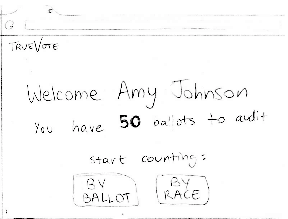 TRUEVOTE
Welcome Amy Johnson
You have 50 ballots to audit
Start counting:
BY BALLOT
BY RACE